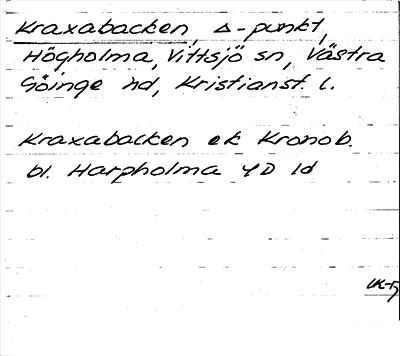 Kraxabacken, Δ-punkt,
Högholma, Vittsjö sn, Västra
Göinge hd, Kristianst. l.
Kraxabacken ek Kronob.
bl. Harpholma 4D 1d